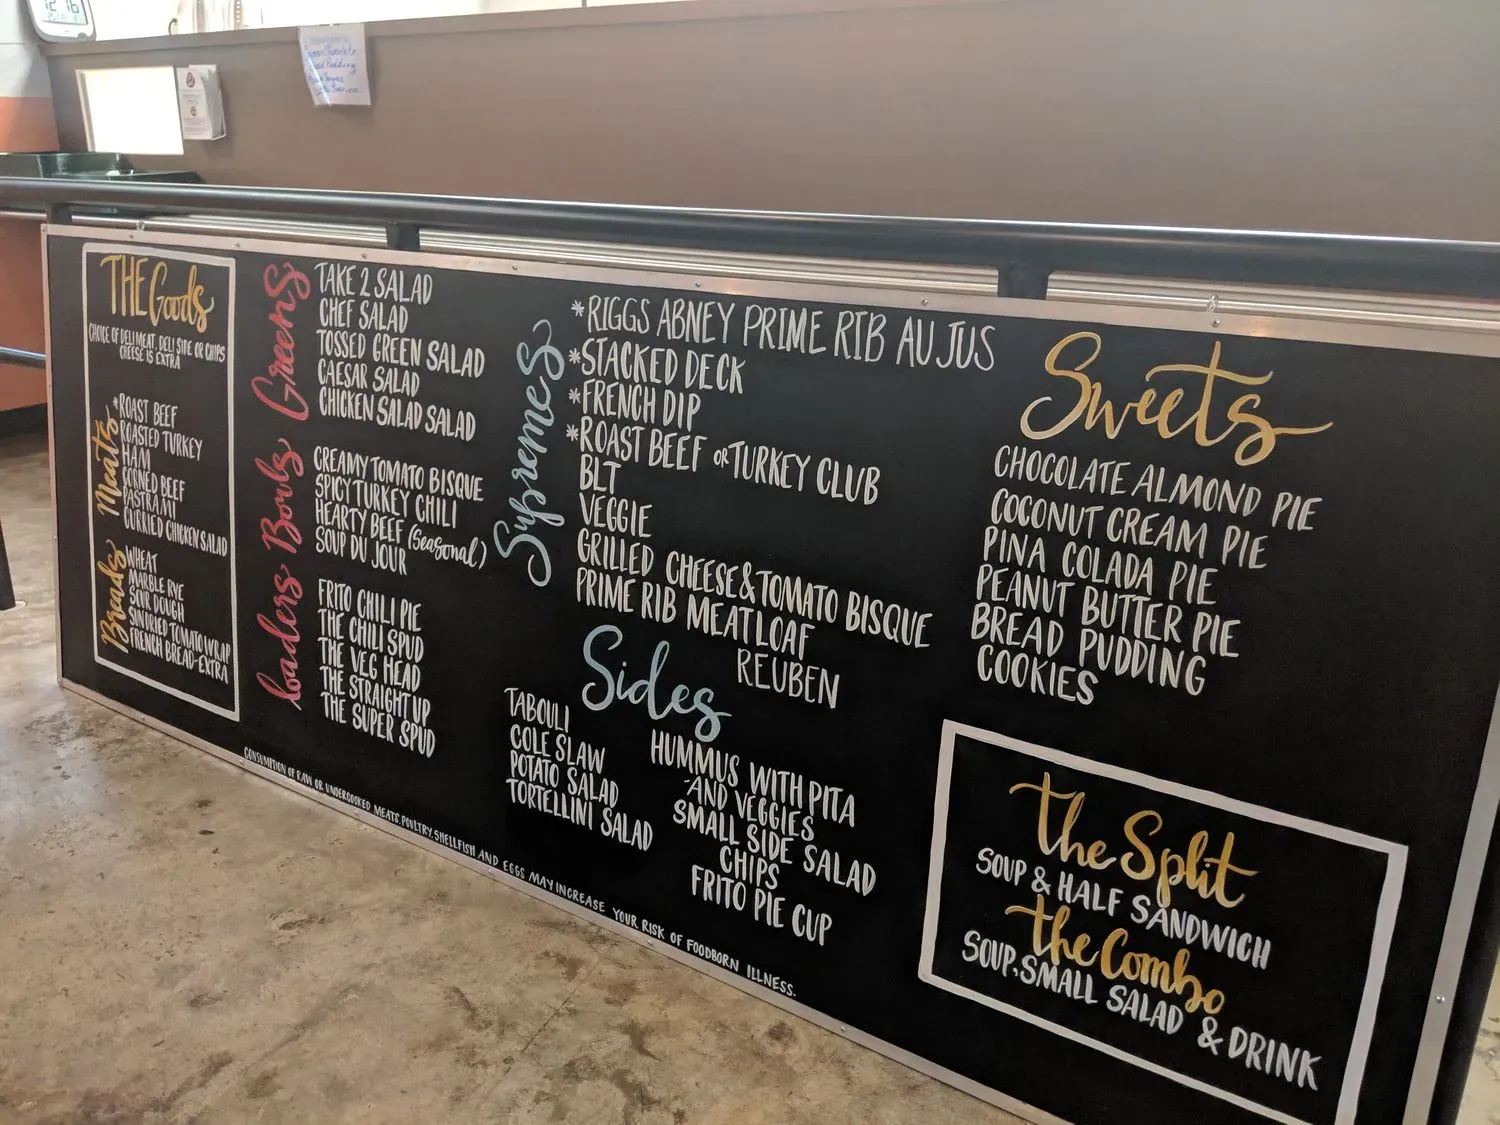 12 16
THE Goods
CHOICE OF DELI MEAT, DELI SIDE OR CHIPS
CHEESE IS EXTRA
Meats
*ROAST BEEF
ROASTED TURKEY
HAM
CORNED BEEF
PASTRAMI
CURRIED CHICKEN SALAD
Breads
WHEAT
MARBLE RYE
SOUR DOUGH
SUNDRIED TOMATO WRAP
FRENCH BREAD-EXTRA
Greens
TAKE 2 SALAD
CHEF SALAD
TOSSED GREEN SALAD
CAESAR SALAD
CHICKEN SALAD SALAD
Bowls
CREAMY TOMATO BISQUE
SPICY TURKEY CHILI
HEARTY BEEF (Seasonal)
SOUP DU JOUR
loaders
FRITO CHILI PIE
THE CHILI SPUD
THE VEG HEAD
THE STRAIGHT UP
THE SUPER SPUD
Supremes
*RIGGS ABNEY PRIME RIB AU JUS
*STACKED DECK
*FRENCH DIP
*ROAST BEEF OR TURKEY CLUB
BLT
VEGGIE
GRILLED CHEESE & TOMATO BISQUE
PRIME RIB MEATLOAF
REUBEN
Sides
TABOULI
COLE SLAW
POTATO SALAD
TORTELLINI SALAD
HUMMUS WITH PITA
AND VEGGIES
SMALL SIDE SALAD
CHIPS
FRITO PIE CUP
Sweets
CHOCOLATE ALMOND PIE
COCONUT CREAM PIE
PINA COLADA PIE
PEANUT BUTTER PIE
BREAD PUDDING
COOKIES
the Split
SOUP & HALF SANDWICH
the Combo
SOUP, SMALL SALAD & DRINK
CONSUMPTION OF RAW OR UNDERCOOKED MEATS, POULTRY, SHELLFISH AND EGGS MAY INCREASE YOUR RISK OF FOODBORN ILLNESS.